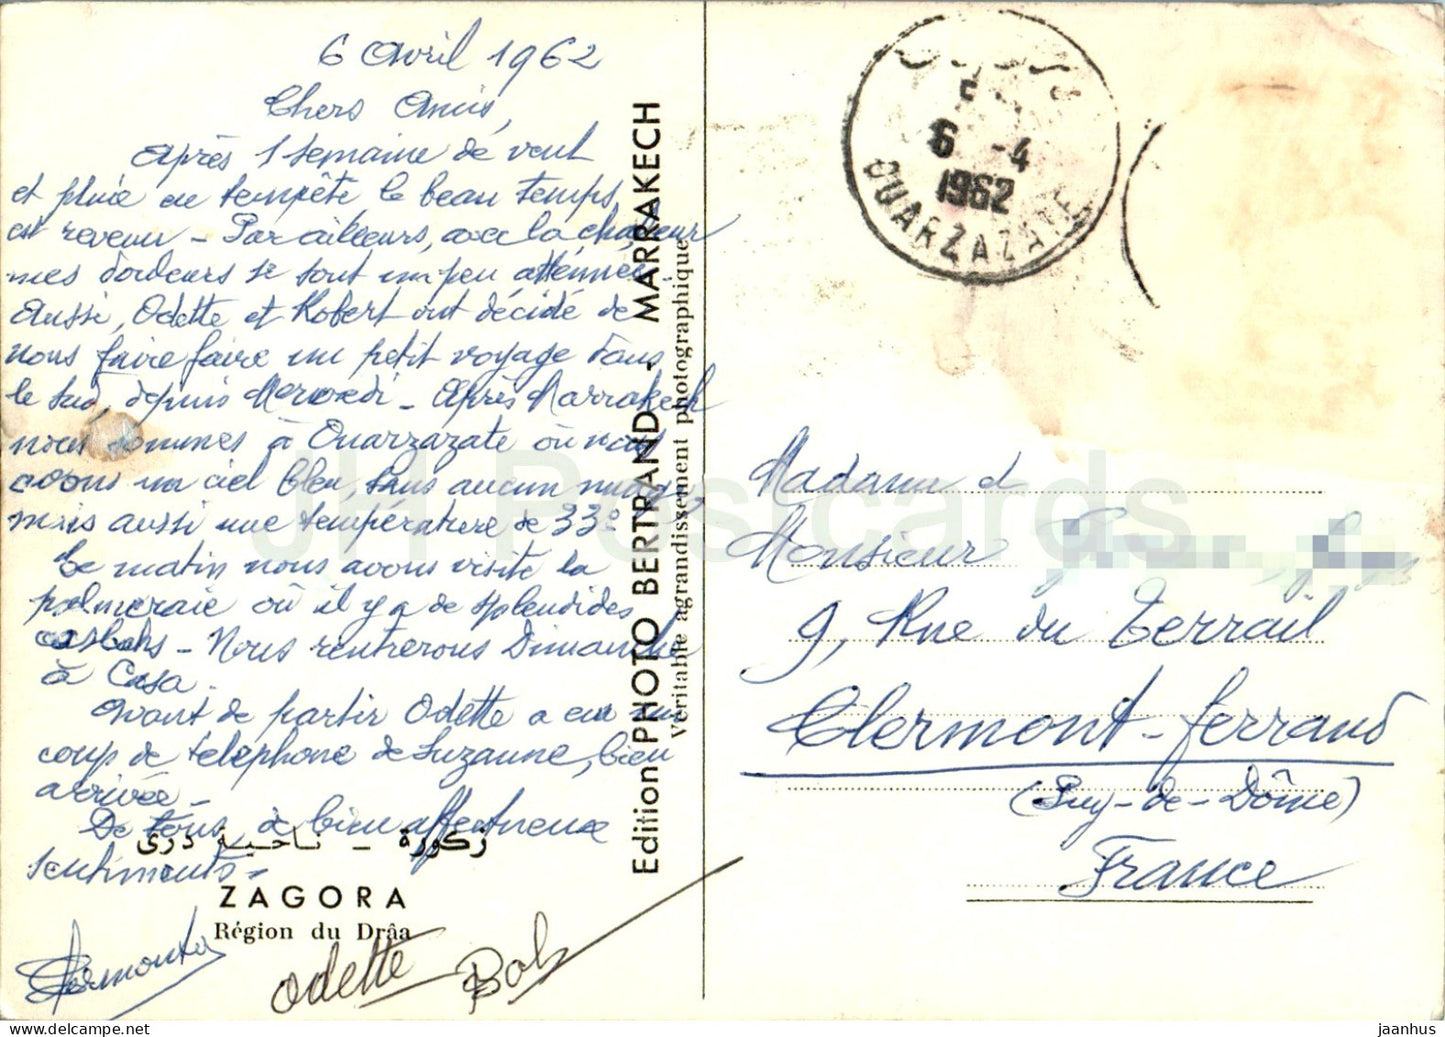 6 Avril 1962
Chers Amis,
Après 1 semaine de vent
et pluie ou tempête le beau temps
est revenu - Par ailleurs, avec la chaleur
mes douleurs se sont un peu atténuées
Aussi, Odette et Robert ont décidé de
nous faire faire un petit voyage dans
le Sud, depuis Mercredi - Après Marrakech
nous sommes à Ouarzazate où nous
avons un ciel bleu, sans aucun nuage,
mais aussi une température de 33°
Ce matin nous avons visité la
palmeraie où il y a de splendides
casbahs - Nous rentrerons Dimanche
à Casa.
Avant de partir Odette a eu un
coup de téléphone de Suzanne, bien
arrivée -
De tous, à bien affectueux
sentiments -
زكورة - ناحية درى
ZAGORA
Région du Drâa
Odette Bob
Edition PHOTO BERTRAND - MARRAKECH
Véritable agrandissement photographique
6 -4
1962
OUARZAZATE
Madame et
Monsieur
9, Rue du Terrail
Clermont-Ferrand
(Puy-de-Dôme)
France
JH Postcards
jaanhus